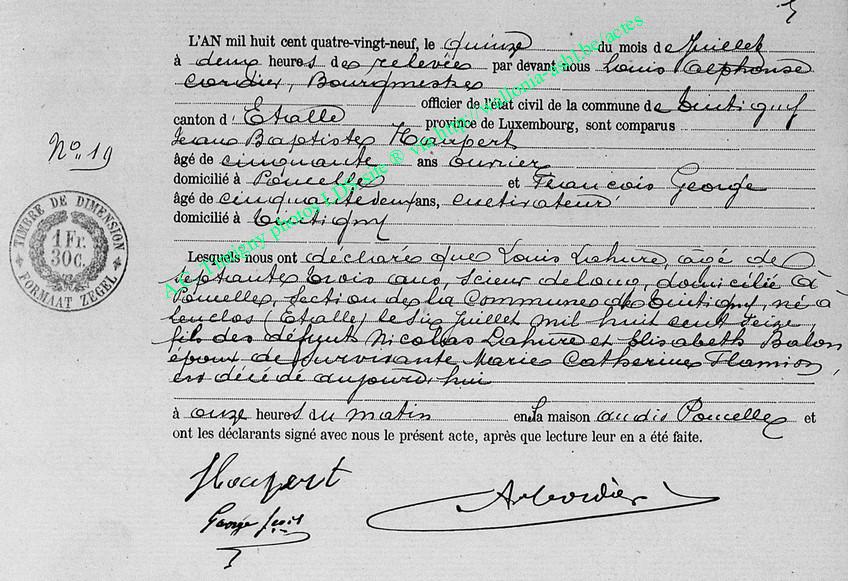 L'AN mil huit cent quatre-vingt-neuf, le quinze du mois de Juillet
à deux heures de relevée par devant nous Louis Alphonse
Cordier, Bourgmestre
officier de l'état civil de la commune de Tintigny
canton d'Etalle province de Luxembourg, sont comparus
Jean Baptiste Haupert
No 19
âgé de cinquante ans ouvrier
domicilié à Poncelle et François George
âgé de cinquante deux ans, cultivateur
domicilié à Tintigny
TIMBRE DE DIMENSION
1 Fr.
30c.
FORMAAT ZEGEL
Lesquels nous ont déclaré que Louis Lahure, âgé de
septante trois ans, Scieur de long, domicilié à
Poncelle, section de la Commune de Tintigny, né à
(Etalle) le Six Juillet mil huit cent Seize,
fils des défunt Nicolas Lahure et Elisabeth Balon
époux de survivante Marie Catherine Flamion,
est décédé aujourd'hui
à onze heures du matin en la maison audit Poncelle et
ont les déclarants signé avec nous le présent acte, après que lecture leur en a été faite.
Haupert
George
Cordier
Tintigny photos via http://wallonia-asbl.be/actes